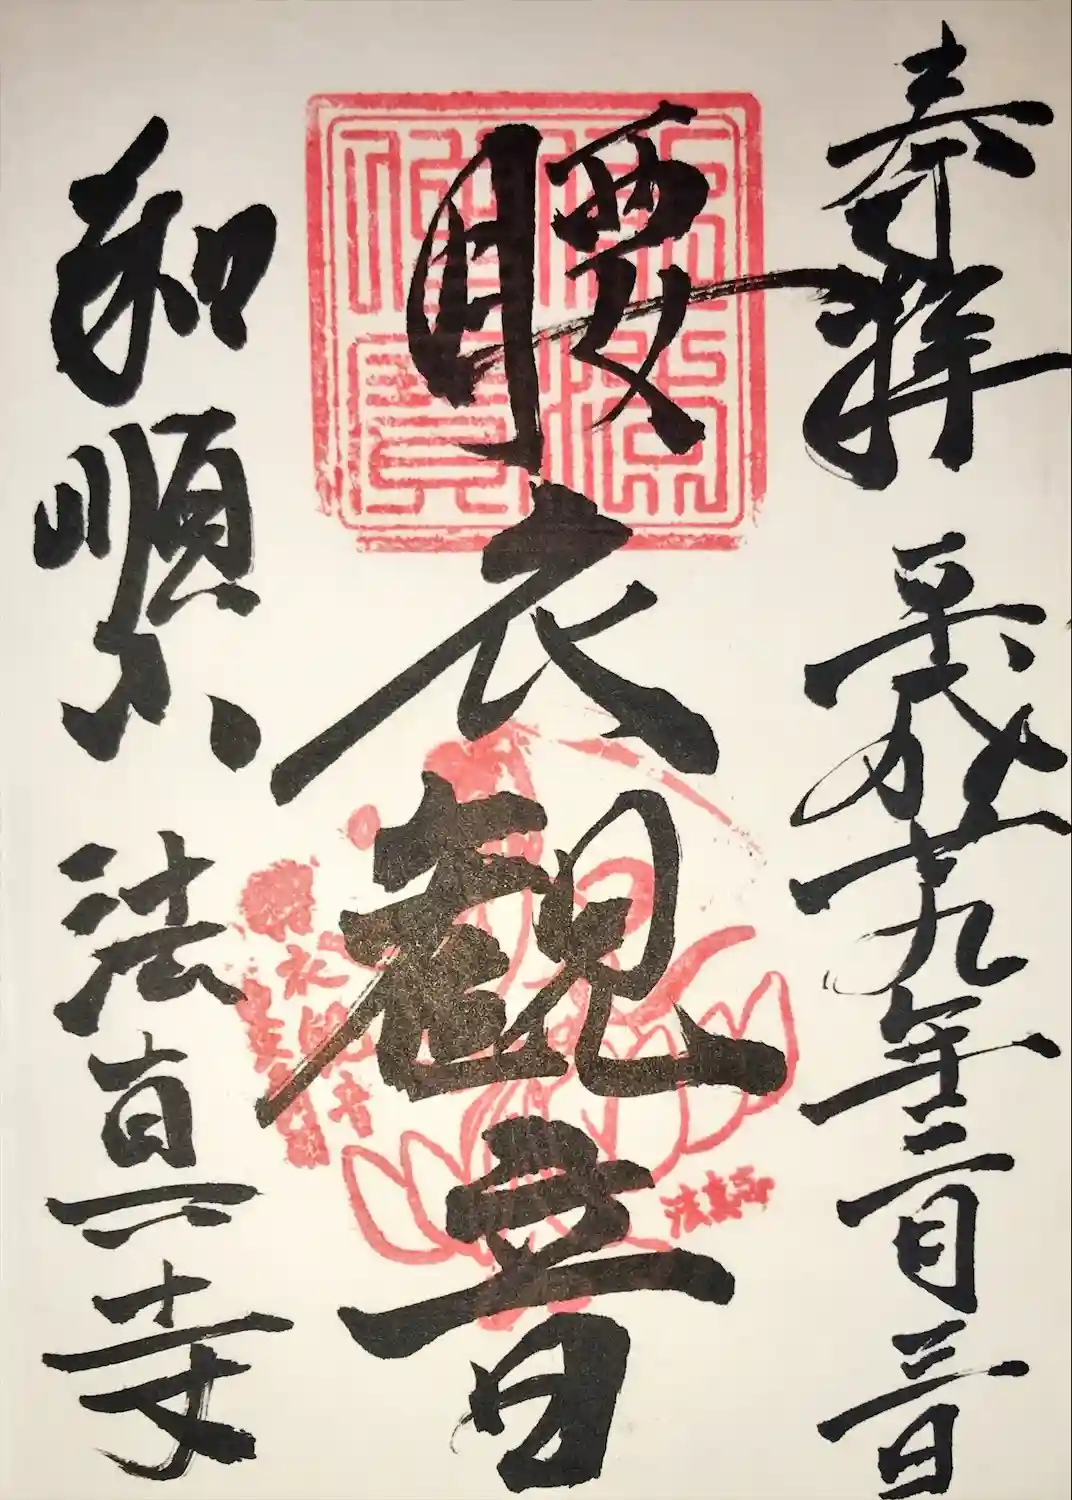 奉拝 平成二十九年二月三日
腰衣観音
和順 法真寺